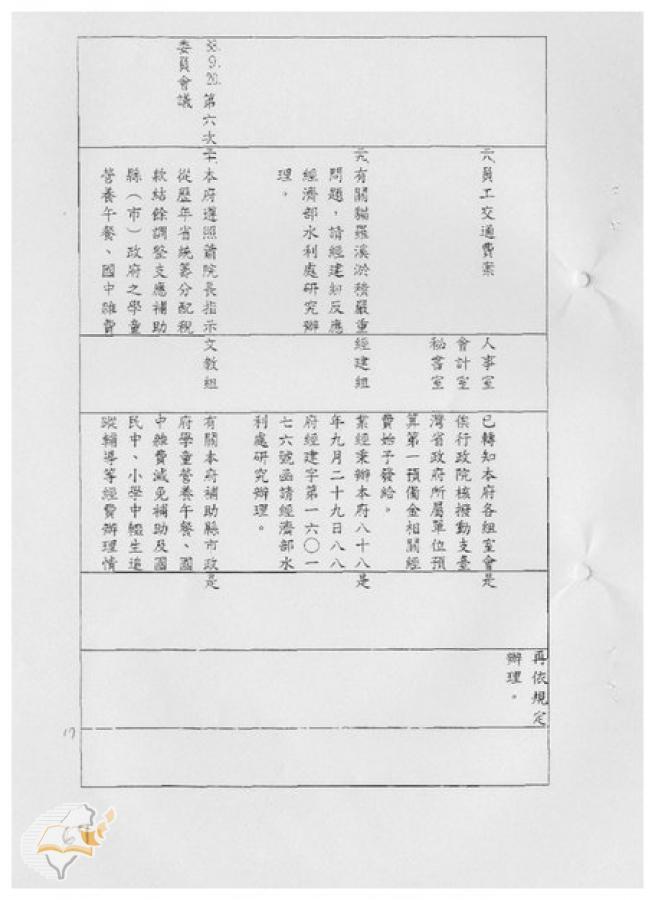 再依規定
辦理。
六、員工交通費案
人事室
會計室
秘書室
已轉知本府各組室會
俟行政院核撥動支臺
灣省政府所屬單位預
算第一預備金相關經
費始予發給。
是
有關貓羅溪淤積嚴重
問題，請經建組反應
經濟部水利處研究辦
理。
經建組
業經秉辦本府八十八
年九月二十九日八八
府經建字第一六〇一
七六號函請經濟部水
利處研究辦理。
是
88.9.20.第六次
委員會議
本府遵照蕭院長指示
從歷年省統籌分配稅
款結餘調整支應補助
縣（市）政府之學童
營養午餐、國中雜費
文教組
有關本府補助縣市政
府學童營養午餐、國
中雜費減免補助及國
民中、小學中輟生追
蹤輔導等經費辦理情
是
17